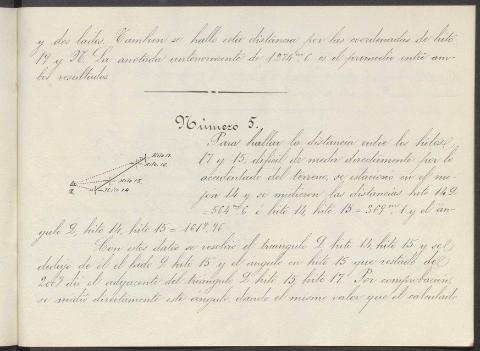 y dos lados. Tambien se halló esta distancia por las coordenadas de hito
19 y N. La anotada anteriormente de 1274m6 es el promedio entre am-
bos resultados.
Número 5.
Para hallar la distancia entre los hitos
17 y 15, dificil de medir directamente por lo
accidentado del terreno, se estacionó en el mo-
jón 14 y se midieron las distancias hito 14 Q
= 564m6 é hito 14, hito 15 = 369m1 y el án-
gulo Q, hito 14, hito 15 = 161g,96.
Con estos datos se resolvió el triangulo Q, hito 14, hito 15 y se
dedujo de él el lado Q hito 15 y el angulo en hito 15 que restado de
200g dá el adyacente del triangulo Q hito 15 hito 17. Por comprobacion
se midió directamente este angulo, dando el mismo valor que el calculado
Hito 17.
Hito 16.
Hito 15.
Hito 14.
Q